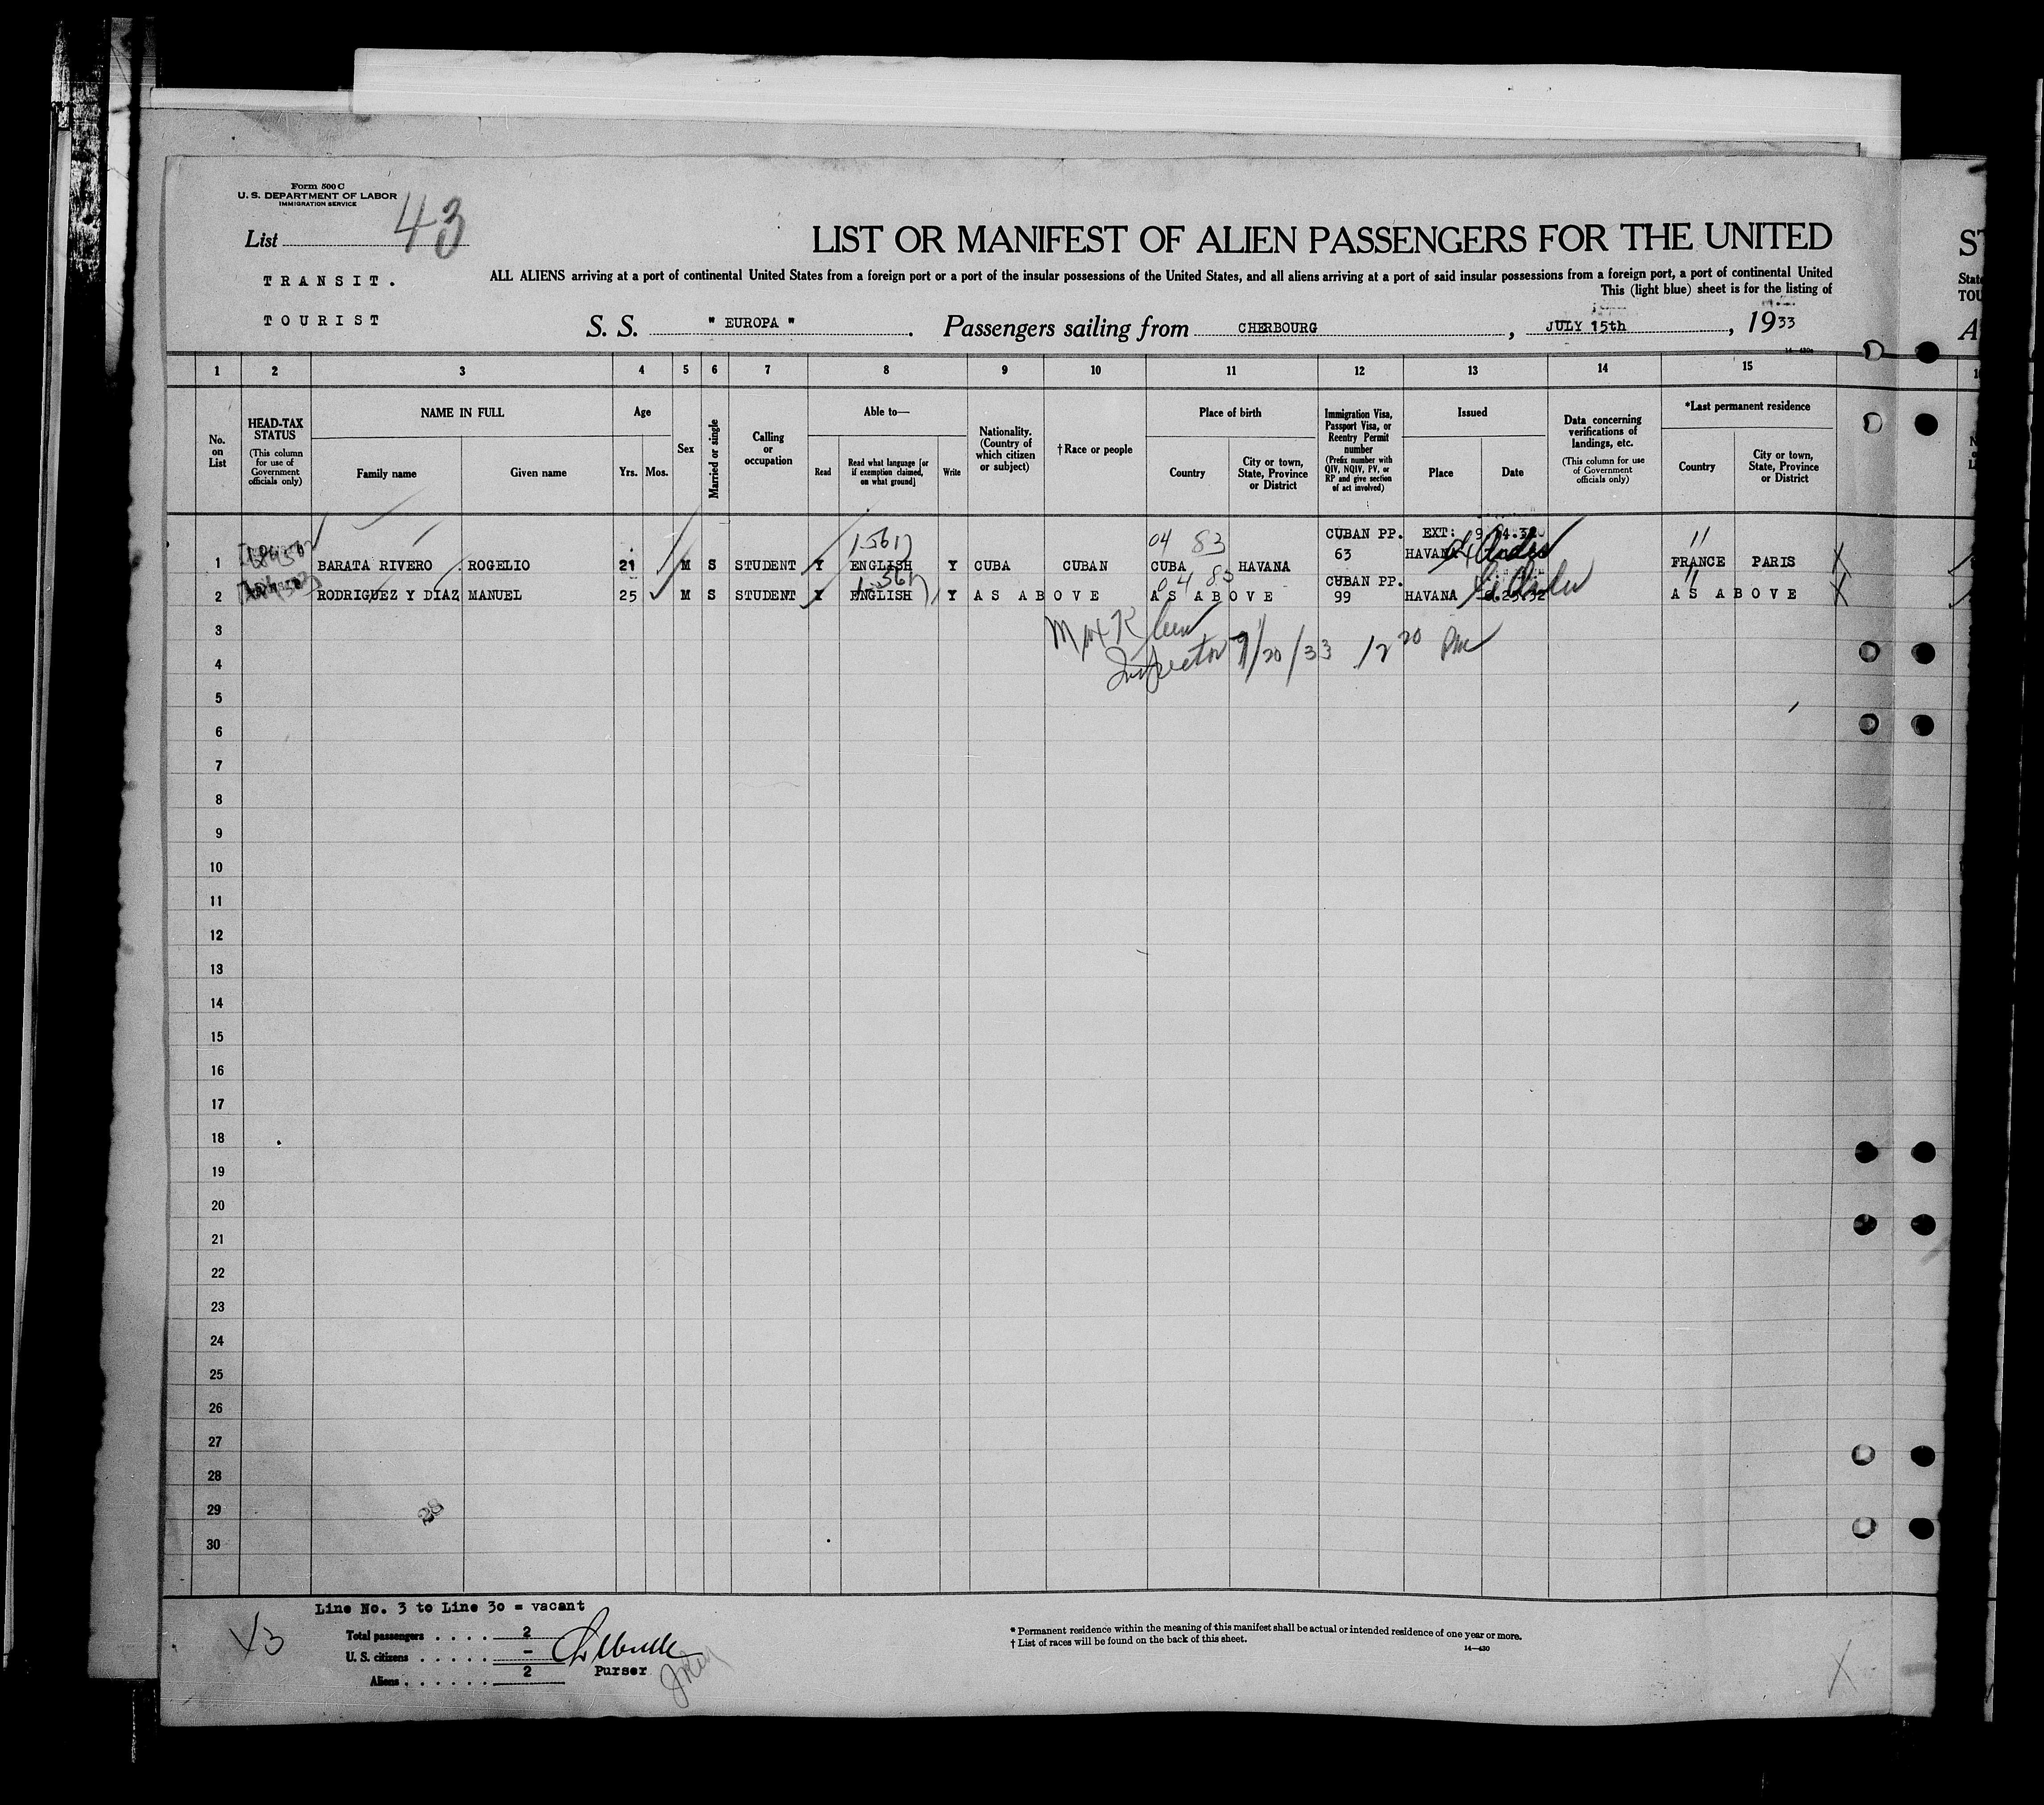 Form 500 C
U. S. DEPARTMENT OF LABOR
IMMIGRATION SERVICE
List 43
TRANSIT.
TOURIST
LIST OR MANIFEST OF ALIEN PASSENGERS FOR THE UNITED
ST
ALL ALIENS arriving at a port of continental United States from a foreign port or a port of the insular possessions of the United States, and all aliens arriving at a port of said insular possessions from a foreign port, a port of continental United
State
This (light blue) sheet is for the listing of
TOU
S. S. " EUROPA ". Passengers sailing from CHERBOURG, JULY 15th, 1933
A
1 2 3 4 5 6 7 8 9 10 11 12 13 14 15
No. on List
HEAD-TAX STATUS (This column for use of Government officials only)
NAME IN FULL
Family name Given name
Age
Yrs. Mos.
Sex
Married or single
Calling or occupation
Able to—
Read Read what language [or if exemption claimed, on what ground] Write
Nationality. (Country of which citizen or subject)
†Race or people
Place of birth
Country City or town, State, Province or District
Immigration Visa, Passport Visa, or Reentry Permit number (Prefix number with QIV, NQIV, PV, or RP and give section of act involved)
Issued
Place Date
Data concerning verifications of landings, etc. (This column for use of Government officials only)
*Last permanent residence
Country City or town, State, Province or District
04 83 CUBAN PP. EXT:
1 BARATA RIVERO ROGELIO 21 M S STUDENT Y ENGLISH Y CUBA CUBAN CUBA HAVANA 63 HAVANA FRANCE PARIS
04 83 CUBAN PP.
2 RODRIGUEZ Y DIAZ MANUEL 25 M S STUDENT Y ENGLISH Y AS ABOVE AS ABOVE 99 HAVANA AS ABOVE
3
Inspector 7/20/33 12 20 PM
4
5
6
7
8
9
10
11
12
13
14
15
16
17
18
19
20
21
22
23
24
25
26
27
28
29
28
30
Line No. 3 to Line 30 = vacant
43
Total passengers . . . . 2
U. S. citizens . . . . . –
Aliens . . . . . . 2
Purser
* Permanent residence within the meaning of this manifest shall be actual or intended residence of one year or more.
† List of races will be found on the back of this sheet.
14—430